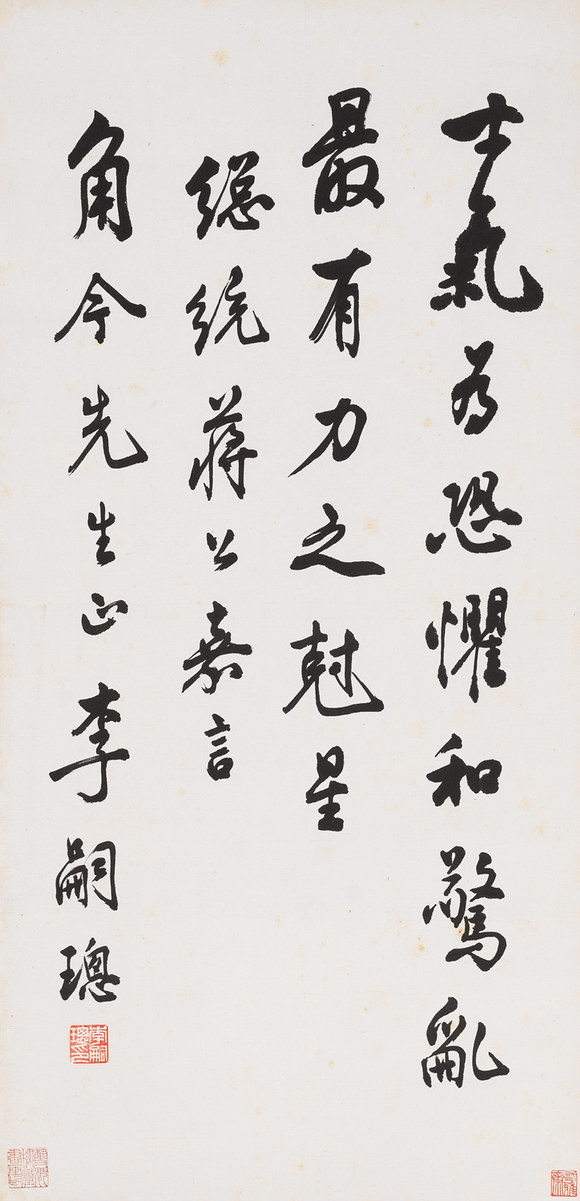 士氣為恐懼和驚亂
最有力之尅星
總統蔣公嘉言
角今先生正 李嗣璁
李嗣璁印